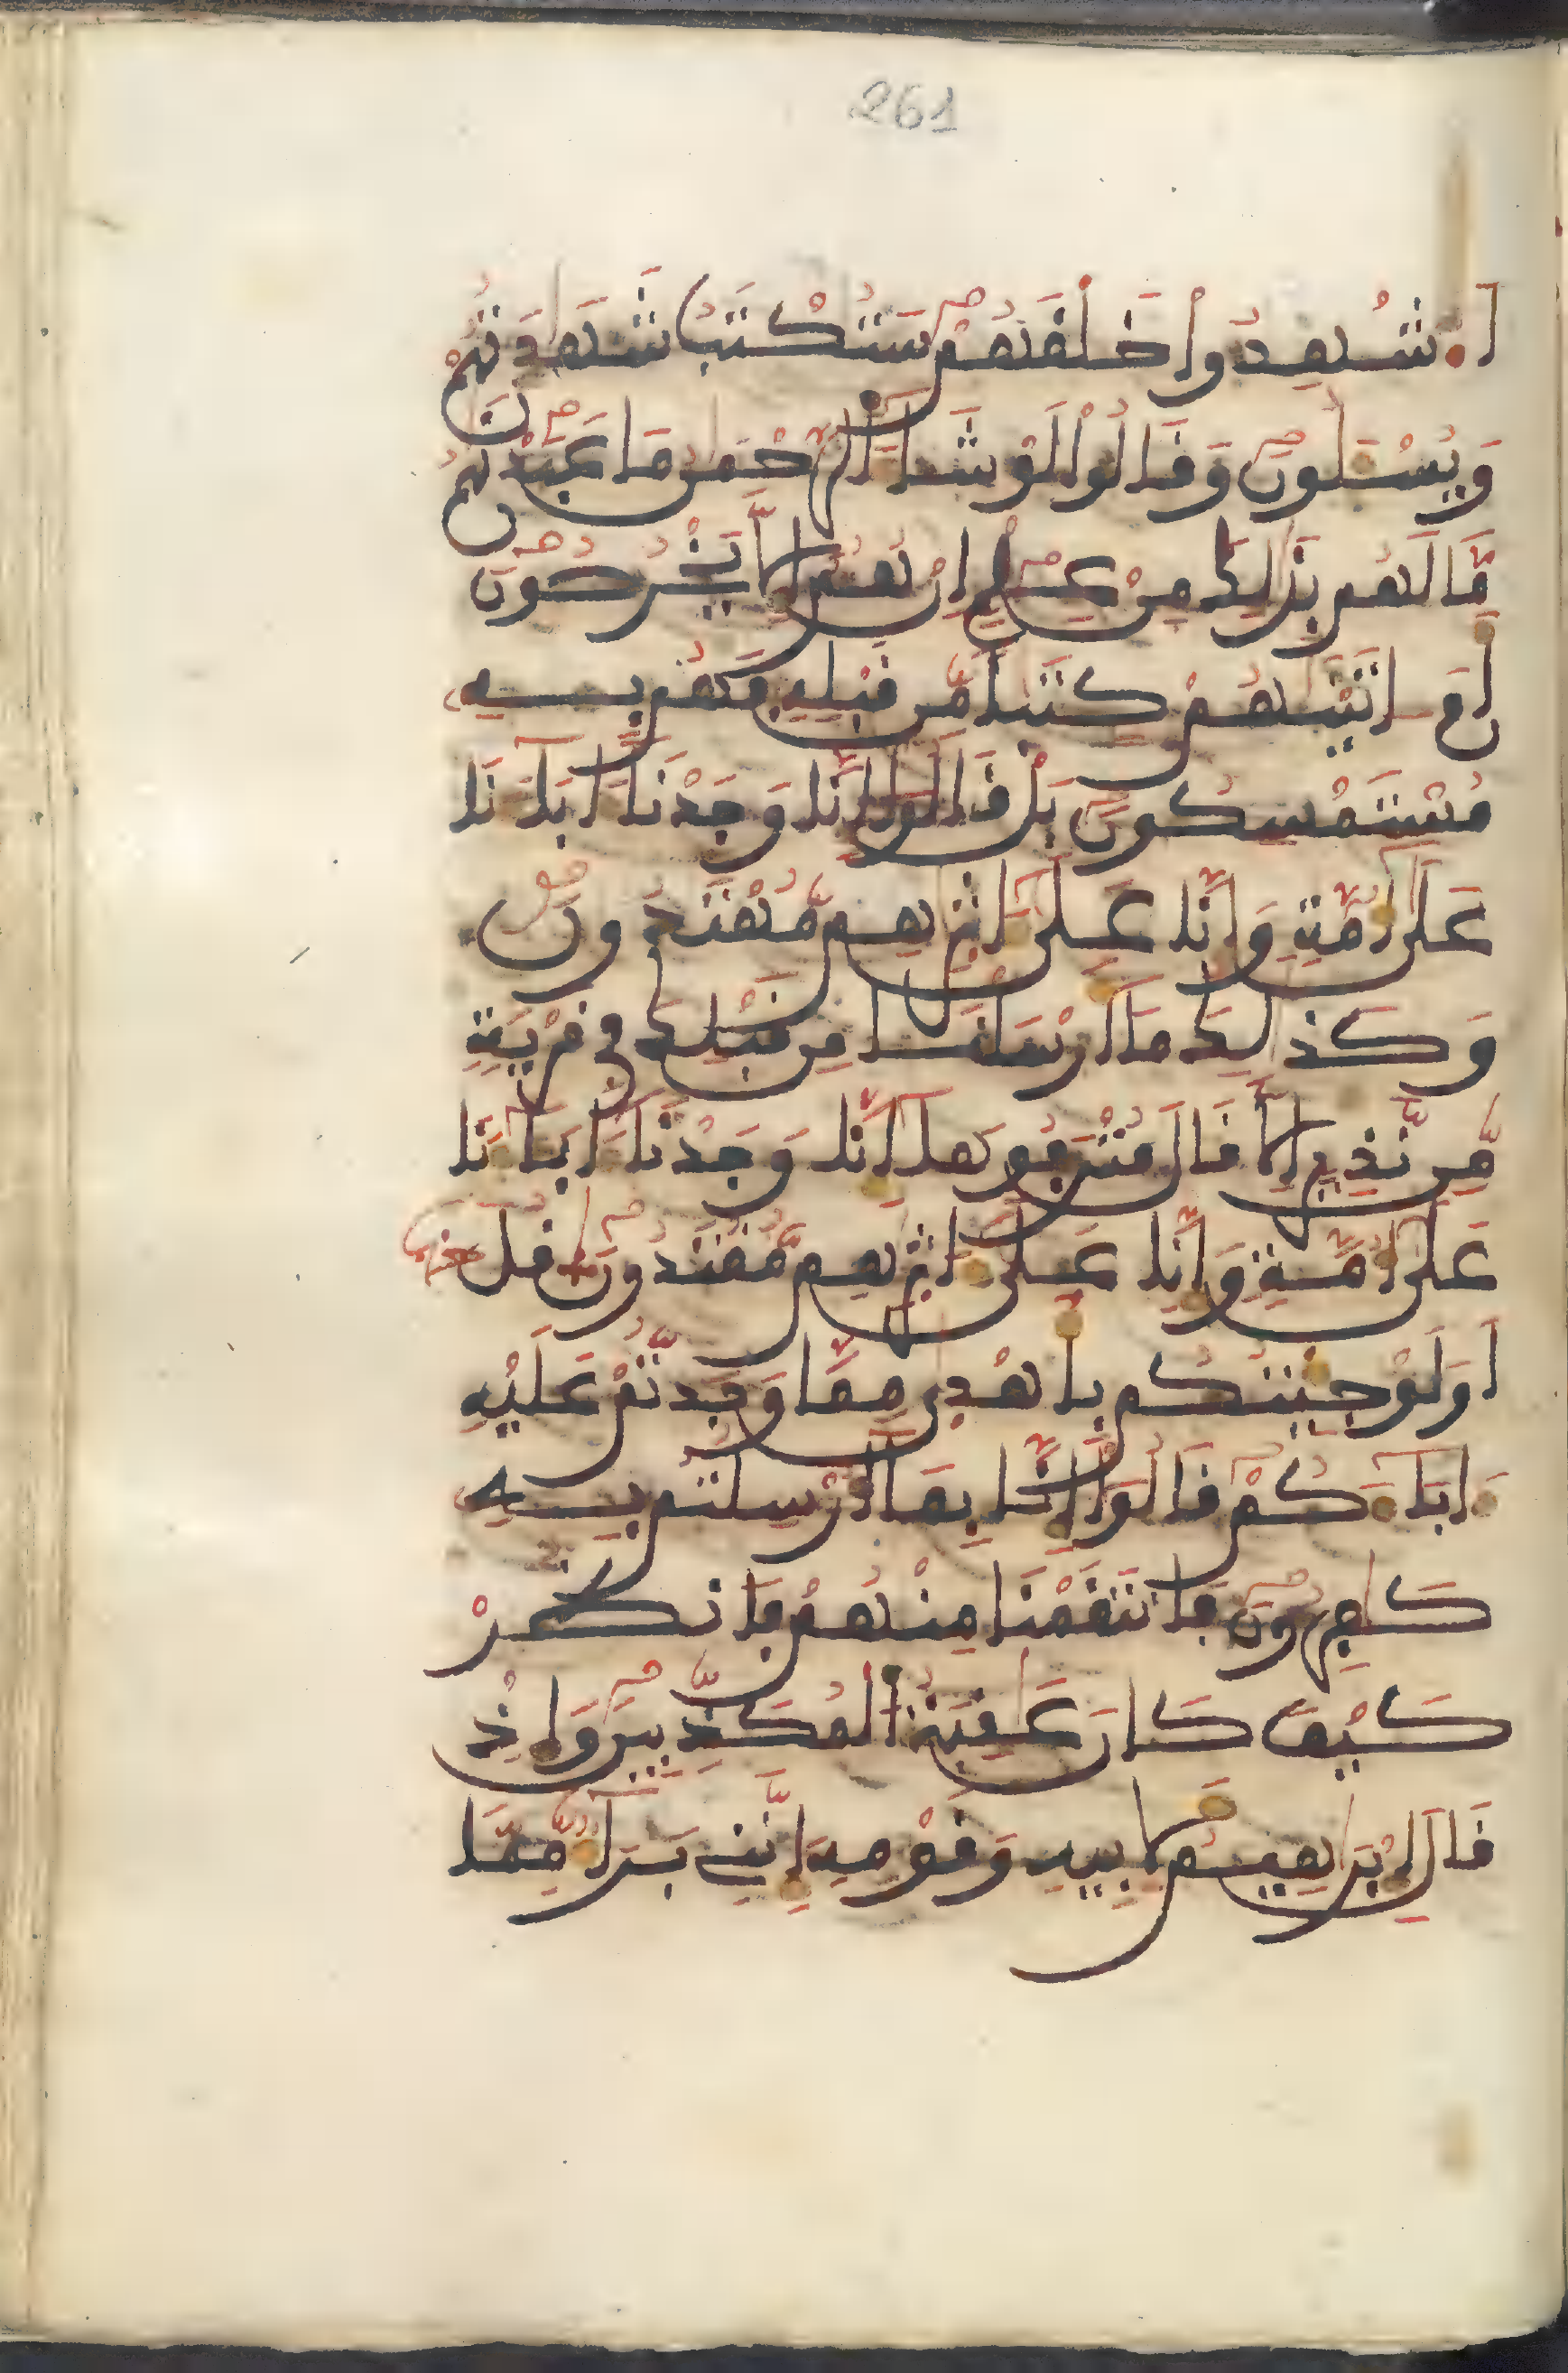 261
ا۟شْهِدُوا۟ خَلْقَهُمْ سَتُكْتَبُ شَهَٰدَتُهُمْ
وَيُسْـَٔلُونَ وَقَالُوا۟ لَوْ شَآءَ اَ۬لرَّحْمَٰنُ مَا عَبَدْنَٰهُم
مَّا لَهُم بِذَٰلِكَ مِنْ عِلْمٍ اِنْ هُمُۥٓ إِلَّا يَخْرُصُونَ
أَمَ اٰتَيْنَٰهُمْ كِتَٰبًا مِّن قَبْلِهِۦ فَهُم بِهِۦ
مُسْتَمْسِكُونَ بَلْ قَالُوٓا۟ إِنَّا وَجَدْنَآ ءَابَآءَنَا
عَلَىٰٓ أُمَّةٍ وَإِنَّا عَلَىٰٓ ءَاثَٰرِهِم مُّهْتَدُونَ
وَكَذَٰلِكَ مَآ أَرْسَلْنَا مِن قَبْلِكَ فِى قَرْيَةٍ
مِّن نَّذِيرٍ اِلَّا قَالَ مُتْرَفُوهَآ إِنَّا وَجَدْنَآ ءَابَآءَنَا
عَلَىٰٓ أُمَّةٍ وَإِنَّا عَلَىٰٓ ءَاثَٰرِهِم مُّقْتَدُونَ قُلَ
اَوَلَوْ جِئْتُكُم بِأَهْدَىٰ مِمَّا وَجَدتُّمْ عَلَيْهِ
ءَابَآءَكُمْ قَالُوٓا۟ إِنَّا بِمَآ أُرْسِلْتُم بِهِۦ
كَٰفِرُونَ فَانتَقَمْنَا مِنْهُمْ فَانظُرْ
كَيْفَ كَانَ عَٰقِبَةُ اُ۬لْمُكَذِّبِينَ وَإِذْ
قَالَ إِبْرَٰهِيمُ لِأَبِيهِ وَقَوْمِهِۦٓ إِنَّنِى بَرَآءٌ مِّمَّا